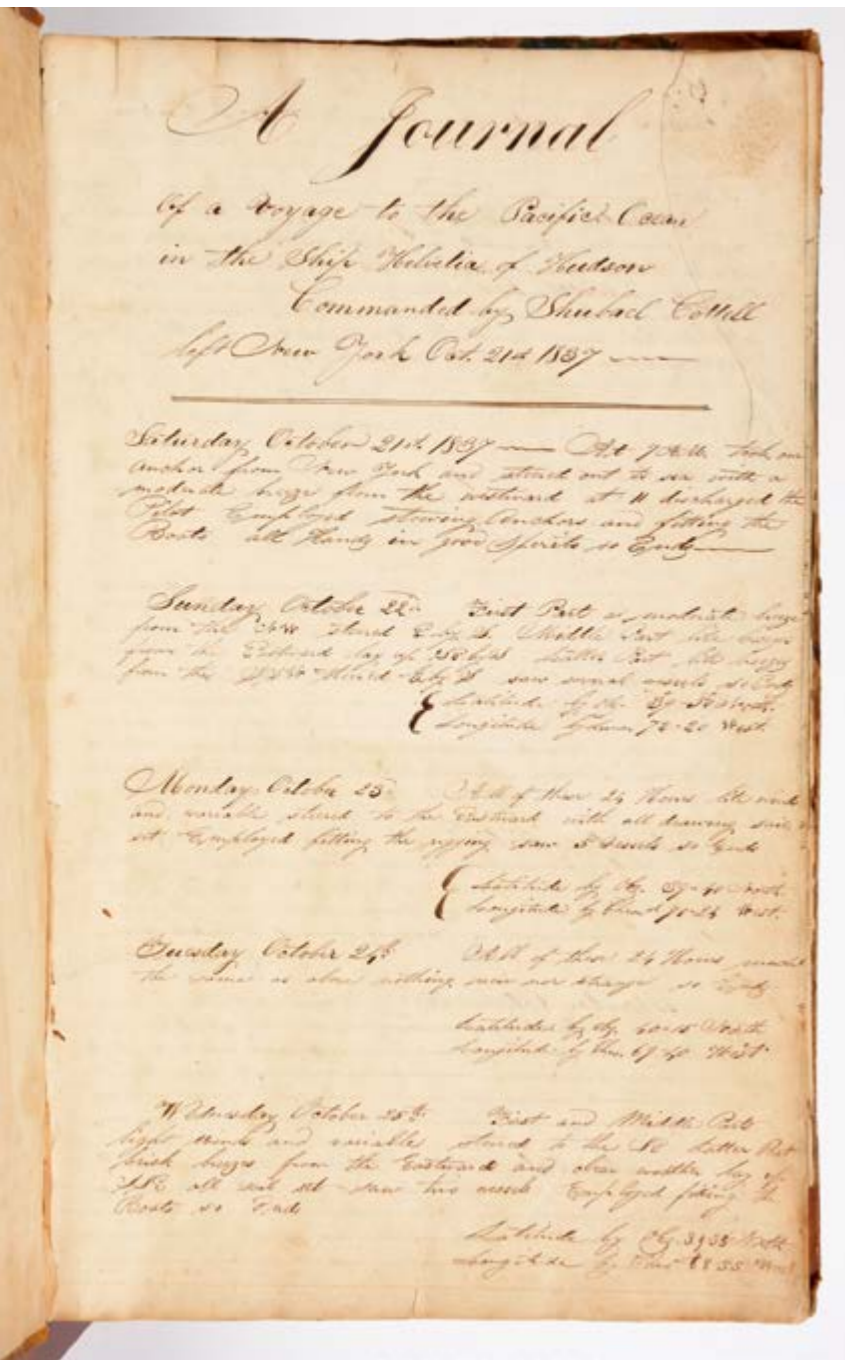 A Journal
Of a Voyage to the Pacific Ocean
in the Ship Helvetia of Hudson
Commanded by Shubael Cottell
left New York Oct. 21st 1837
Saturday October 21st 1837 At 7 AM took our
anchor from New York and stood out to sea with a
moderate breeze from the westward at 11 discharged the
Pilot Employed stowing Anchors and fitting the
Boats all Hands in good Spirits so Ends
Sunday October 22d First Part a moderate breeze
from the steered E by S. Middle Part lite breeze
from the Eastward lay up Latter Part lite breezes
from the steered E by S saw several vessels so Ends
Latitude by Ob. 39- North
Longitude by 72-20 West.
Monday October 23 All of these 24 Hours lite winds
and variable steered to the Eastward with all drawing sail
set Employed fitting the rigging saw 5 vessels so Ends
Latitude by Ob. 39-40 North
Longitude by Chro 70-24 West.
Tuesday October 24th All of these 24 Hours much
the same as above nothing new nor strange so Ends
Latitude by Ob. 40-15 North
Longitude by Chro. 69-40 West
Wednesday October 25th First and Middle Part
light winds and variable steered to the SE Latter Part
brisk breezes from the Eastward and clear weather lay up
all sail set saw two vessels Employed fixing the
Boats so Ends
Latitude by Ob. 39 38 North
Longitude by Chro 68 35 West